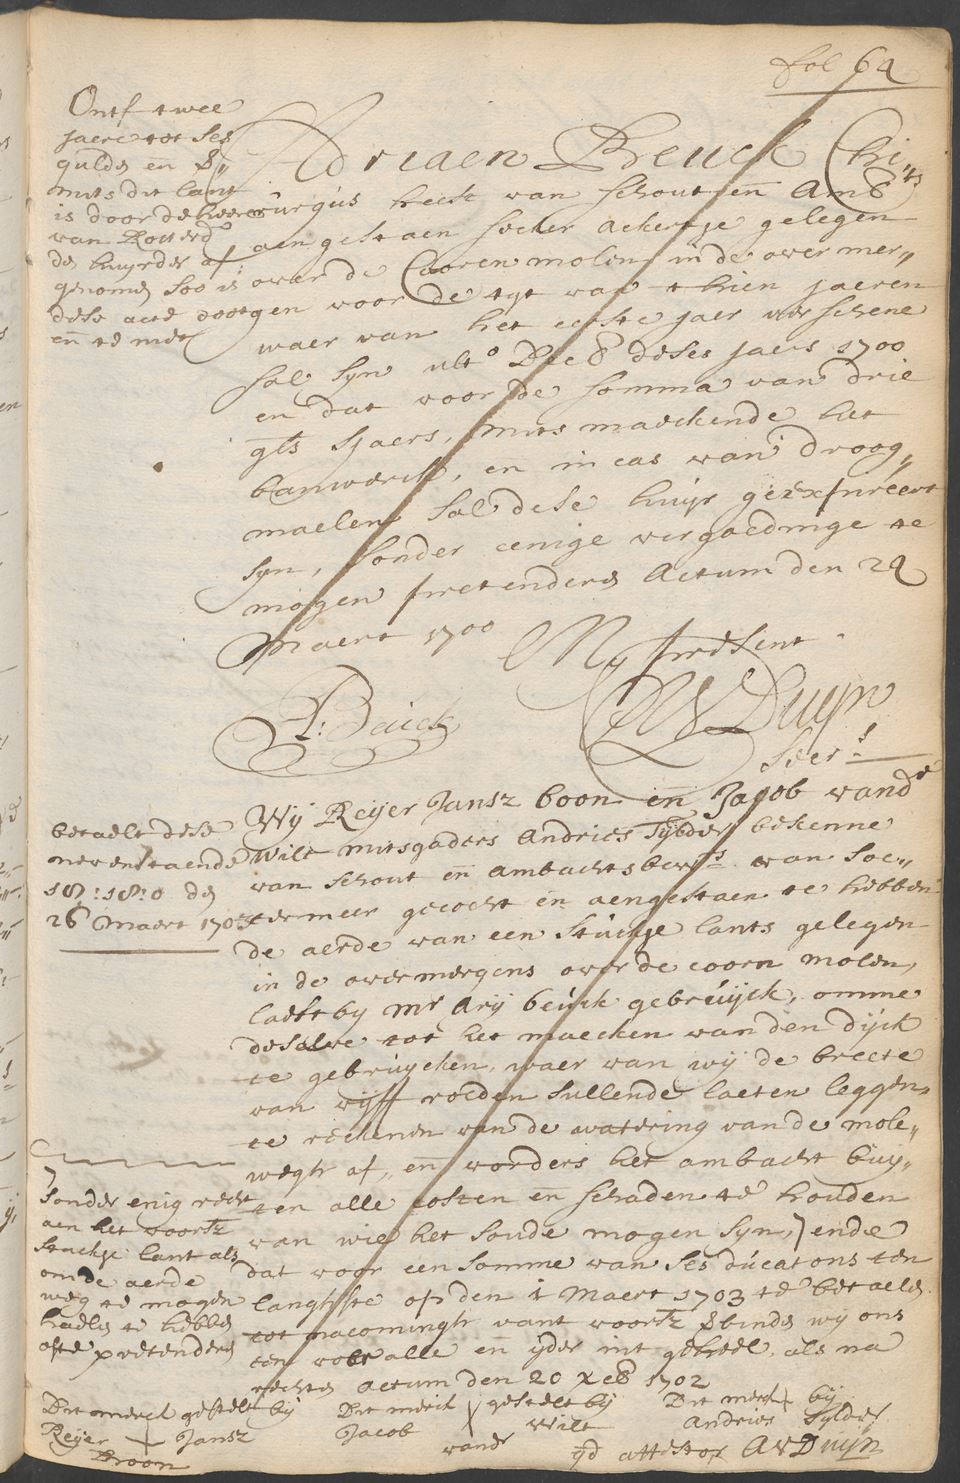 fol 64
Ontf twee
jaere tot ses
guldn en S
mits dit lant
is door de heeren
van Rotterdo
de huyrder af
genomen soo is
dese acte doot
en te niet
Adriaen Beuck Chi
rurgus heeft van schout en Amb
aengestaen seeker Ackertje gelegen
over de Cooren molen in de over mer,,
gen voor de tyt van thien jaeren
waer van het eerste jaer verschene
sal syn ulto Dec8 deses jaers 1700
en dat voor de somma van drie
gls sjaers, mits maeckende het
banwerck, en in cas van droog,,
maelen sal dese huyr geexpireert
syn, sonder eenige vergoedinge te
mogen pretenderen Actum den 24
Maert 1700
My present
A: Beuck
AVDuyn
Secrs
betaelt dese
nevenstaende
18:18:0 den
26 Maert 1703
Wij Reijer Jansz boon en Jacob vande
Wilt mitsgaders Andries Sijbder bekenne
van schout en ambachtsbewrs van Soe,,
termeer gecocht en aengestaen te hebben
de aerde van een stuckje lants gelegen
in de overmergens over de coorn molen,
laest by Mr Arij beuck gebruijckt, omme
deselve tot het maecken van den dijck
te gebruijcken, waer van wij de breete
van vijff roeden sullende laeten leggen,
te rekenen van de watering van de mole,,
wegh af, en vorders het ambacht buy,,
ten alle costen en schaden te houden
van wie het soude mogen syn, ende
dat voor een somme van ses ducatons ten
langhste op den 1 Maert 1703 te betaelen
tot nacomingh vant voorsz verbinde wij ons
een voor alle en yder int geheel, als na
rechten actum den 20 Xe8 1702
sonder enig recht
aen het voorsz
stuckje lant als
om de aerde
weg te mogen
haelen te hebben
ofte pretenderen
Dit merck gestelt bij
Reijer Jansz
Boon
Dit merck gestelt bij
Jacob vande Wilt
Dit merck bij
Andries Sybder
qd attestor AVDuijn